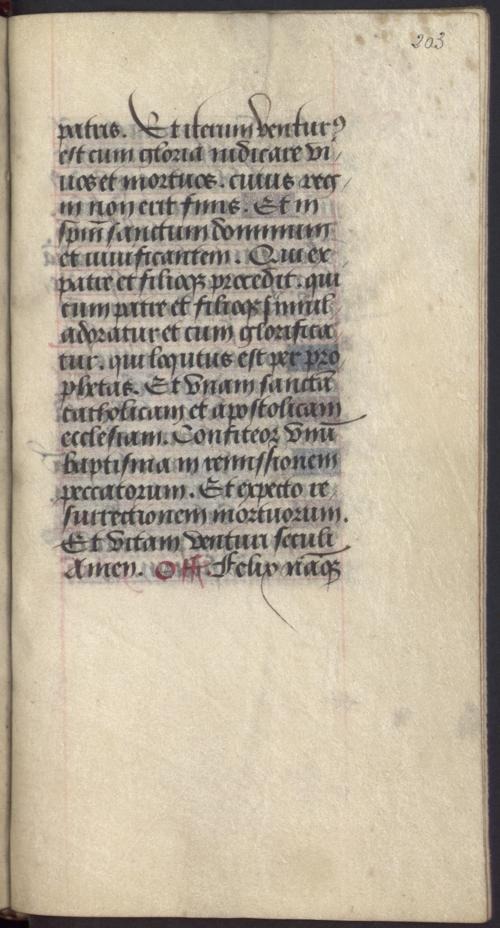 203
patris. Et iterum ventur⁹
est cum gloria iudicare vi/
uos et mortuos. cuius reg/
ni non erit finis. Et in
spm̄ sanctum dominum
et uiuificantem. Qui ex
patre et filioqꝫ procedit. qui
cum patre et filioqꝫ simul
adoratur et cum glorifica
tur. qui loqutus est per pro
phetas. Et vnam sanctā
catholicam et apostolicam
ecclesiam. Confiteor vnū
baptisma in remissionem
peccatorum. Et expecto re/
surrectionem mortuorum.
Et vitam venturi seculi
Amen. Off. Felix nāqꝫ